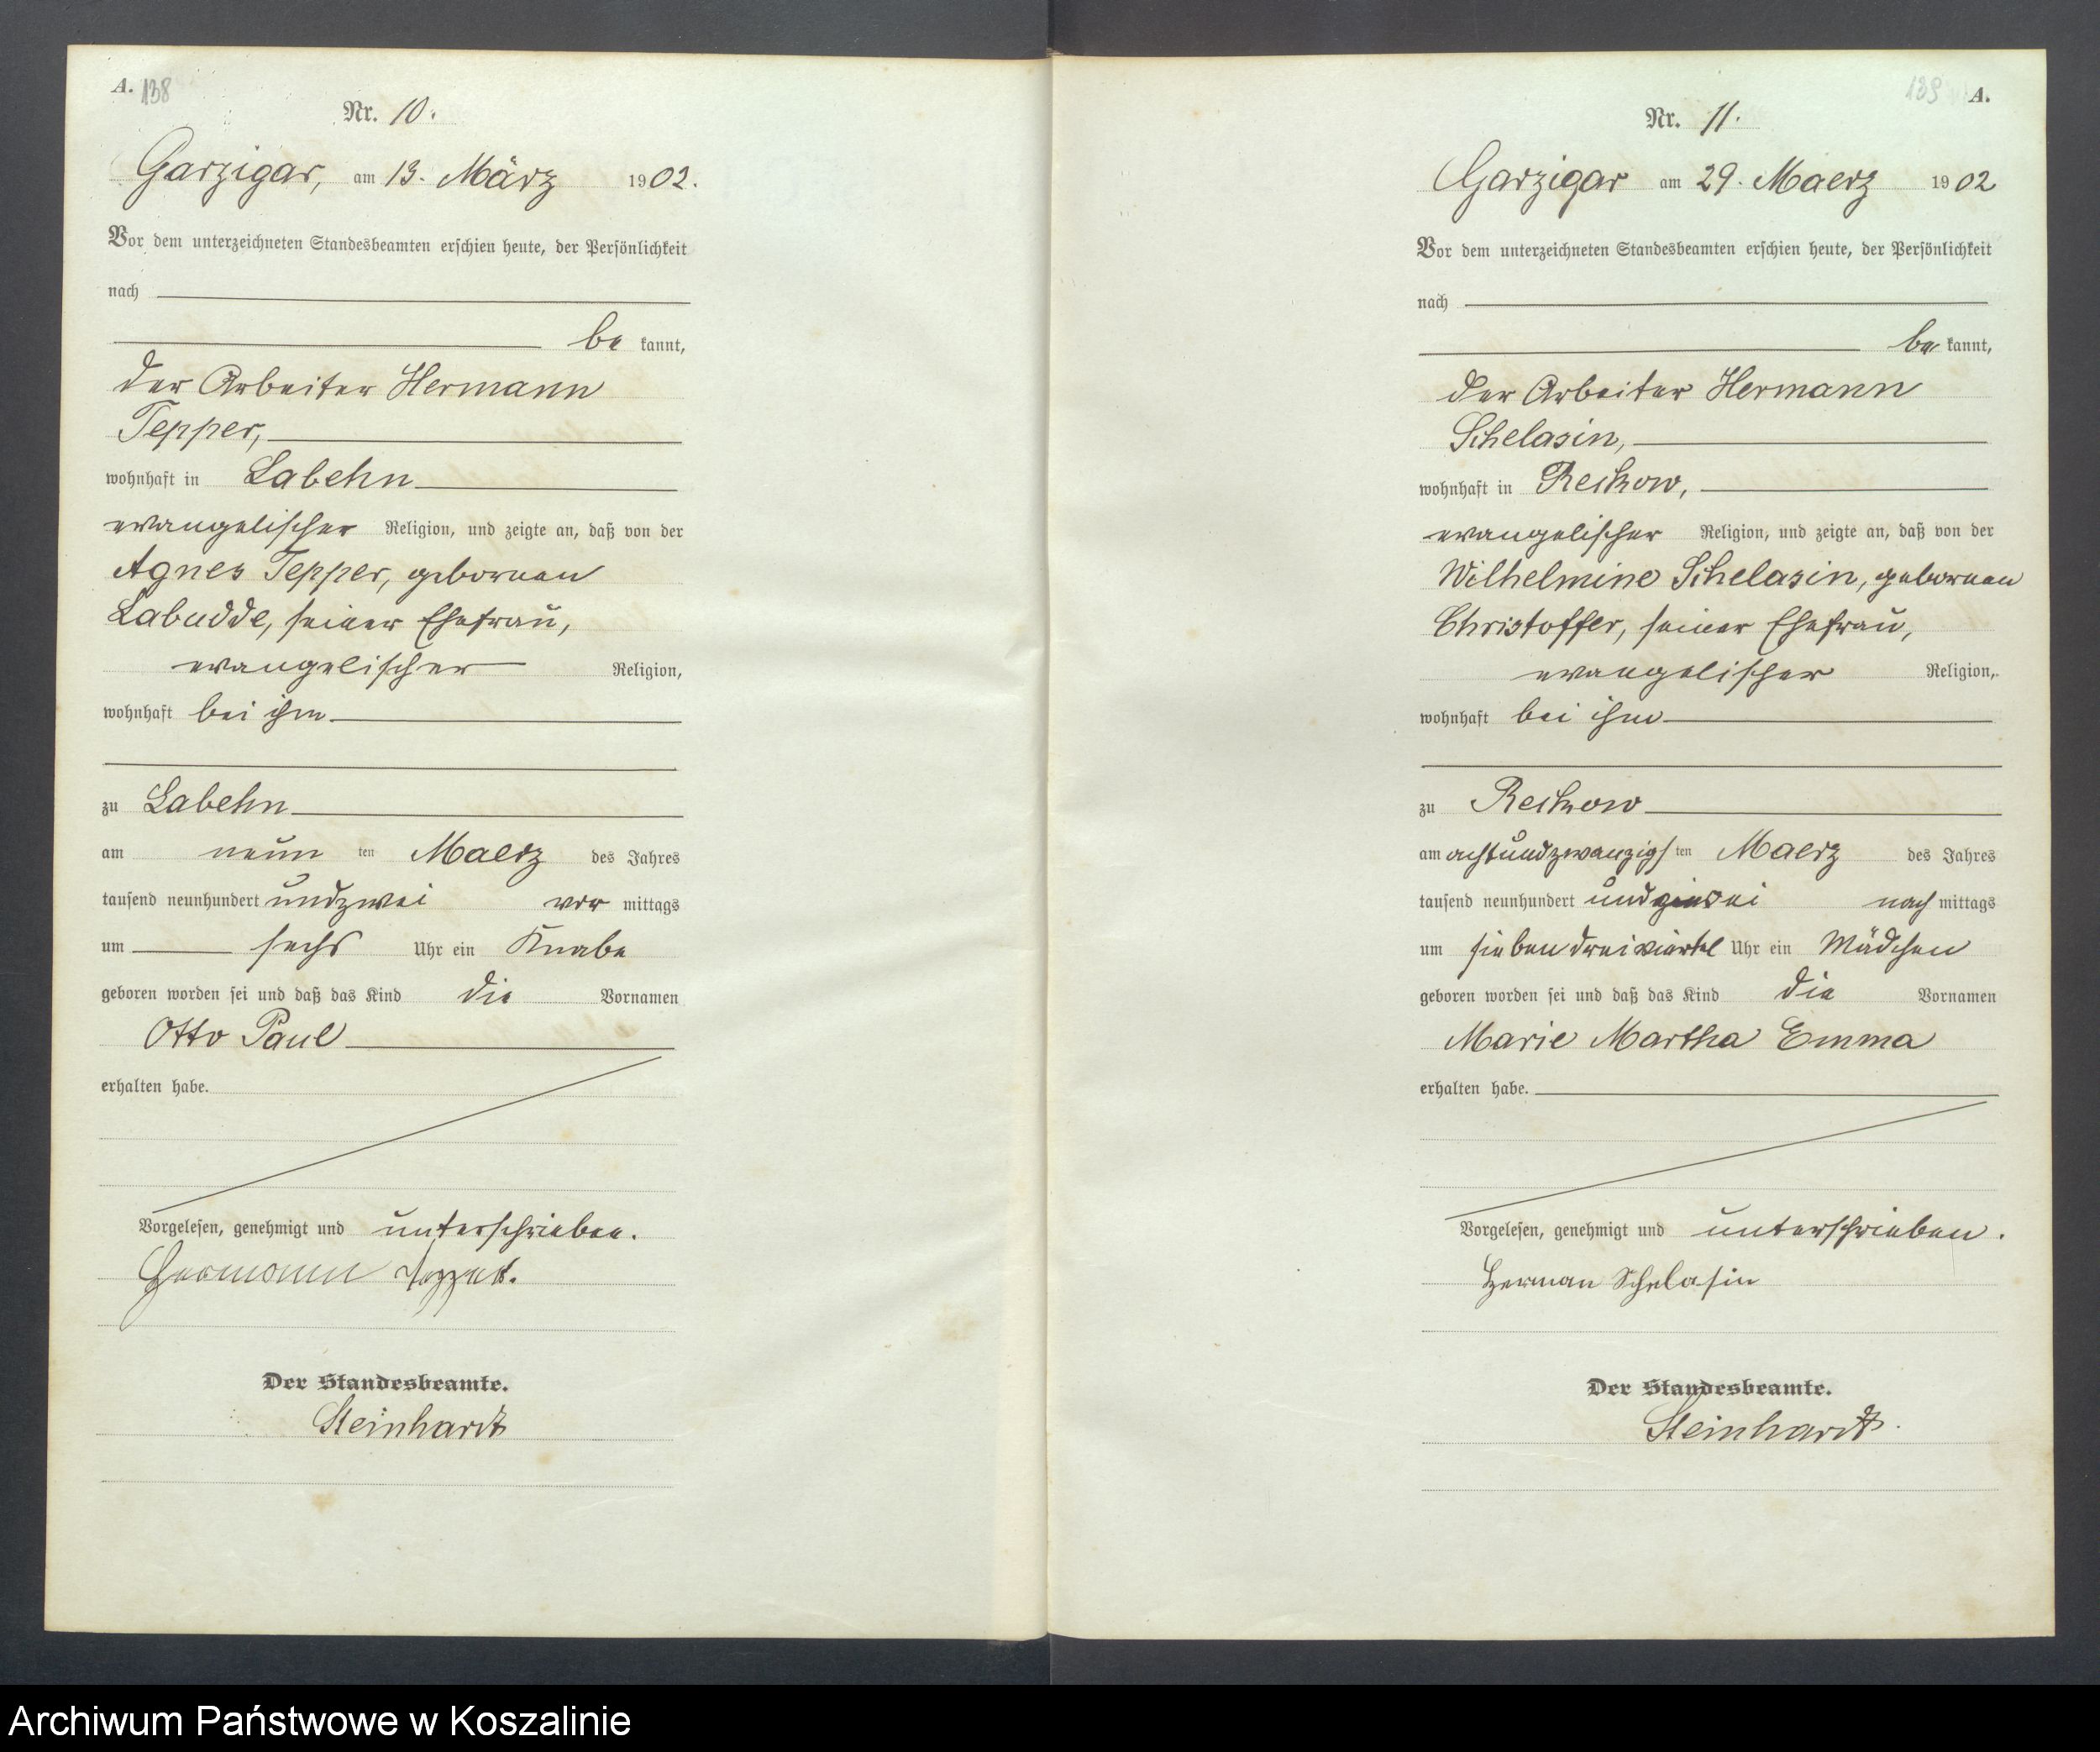 A. 138
Nr. 10.
Garzigar, am 13. März 1902.
Vor dem unterzeichneten Standesbeamten erschien heute, der Persönlichkeit
nach
be kannt,
der Arbeiter Hermann
Tepper,
wohnhaft in Labehn
evangelischer Religion, und zeigte an, daß von der
Agnes Tepper, geborenen
Labudde, seiner Ehefrau,
evangelischer Religion,
wohnhaft bei ihm
zu Labehn
am neun ten Maerz des Jahres
tausend neunhundert undzwei vor mittags
um sechs Uhr ein Knabe
geboren worden sei und daß das Kind die Vornamen
Otto Paul
erhalten habe.
Vorgelesen, genehmigt und unterschrieben.
Hermann Tepper.
Der Standesbeamte.
Steinhardt
139 A.
Nr. 11.
Garzigar am 29. Maerz 1902
Vor dem unterzeichneten Standesbeamten erschien heute, der Persönlichkeit
nach
be kannt,
der Arbeiter Hermann
Schelasin,
wohnhaft in Reckow,
evangelischer Religion, und zeigte an, daß von der
Wilhelmine Schelasin, geborenen
Christoffer, seiner Ehefrau,
evangelischer Religion,
wohnhaft bei ihm
zu Reckow
am achtundzwanzigs ten Maerz des Jahres
tausend neunhundert undzwei nach mittags
um sieben dreiviertel Uhr ein Mädchen
geboren worden sei und daß das Kind die Vornamen
Marie Martha Emma
erhalten habe.
Vorgelesen, genehmigt und unterschrieben.
Herman Schelasin
Der Standesbeamte.
Steinhardt.
Archiwum Państwowe w Koszalinie